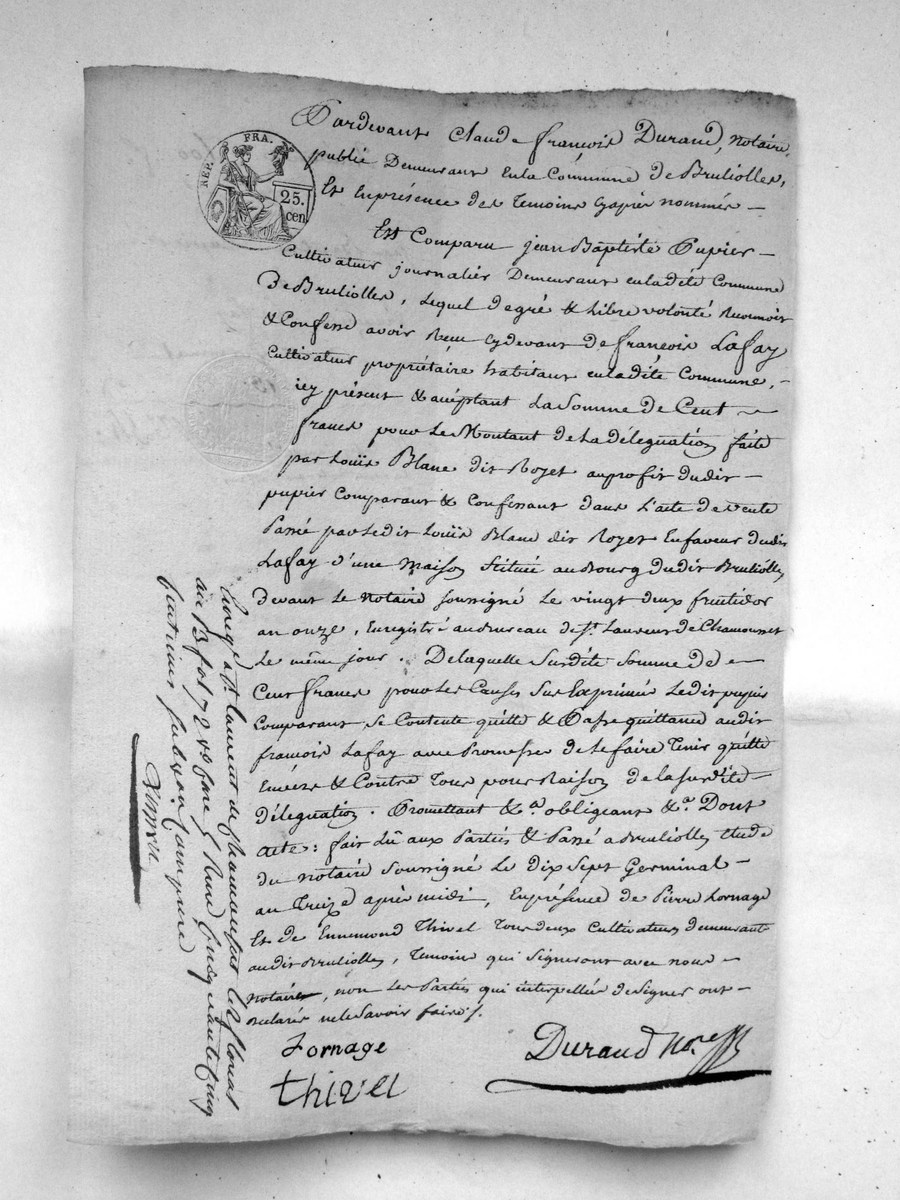 REP. FRA.
25. cen.
Pardevant Claude françois Durand, notaire
public Demeurant en la Commune de Brullioles,
Et En présence des Temoins Cyapres nommés —
Est Comparu jean Baptiste Pupier —
Cultivateur journalier Demeurant en ladite Commune
De Brullioles, Lequel de gré & Libre volonté Reconnoit
& Confesse avoir Recu Cydevant de françois Lafay
Cultivateur propriétaire habitant en ladite Commune, —
icy présent & acceptant La Somme de Cent ~
francs pour Le Montant de La délégation faite
par Louis Blanc dit Royet au profit dudit —
pupier Comparant & Confessant dans L'acte de vente
Passé par Ledit Louis Blanc dit Royet En faveur dudit
Lafay d'une Maison Scituée au Bourg dudit Brullioles
devant Le Notaire soussigné Le vingt deux fructidor
an onze, Enregistré au Bureau de St. Laurent de Chamousset
Le même jour. De laquelle Susdite Somme de —
Cent francs pour Les Causes Sus Exprimées Ledit pupier
Comparant, Se Contente quitte & Passe quittance audit
françois Lafay avec Promesse de Le faire Tenir quitte
Envers & Contre Tous pour Raison de la susdite
délégation. Promettant &a. obligeant &a. Dont
acte: fait Lû aux Parties & Passé a Brullioles Etude
du Notaire Soussigné Le Dix Sept Germinal —
an Treize après midi, En présence de Pierre Fornage
Et de Ennemond Thivel Tous deux Cultivateurs demeurant
audit Brullioles, Temoins qui Signeront avec nous —
Notaire, non Les Parties qui interpellées de Signer ont —
Declarés ne le Savoir faire /.
Fornage
Thivel
Durand Nore